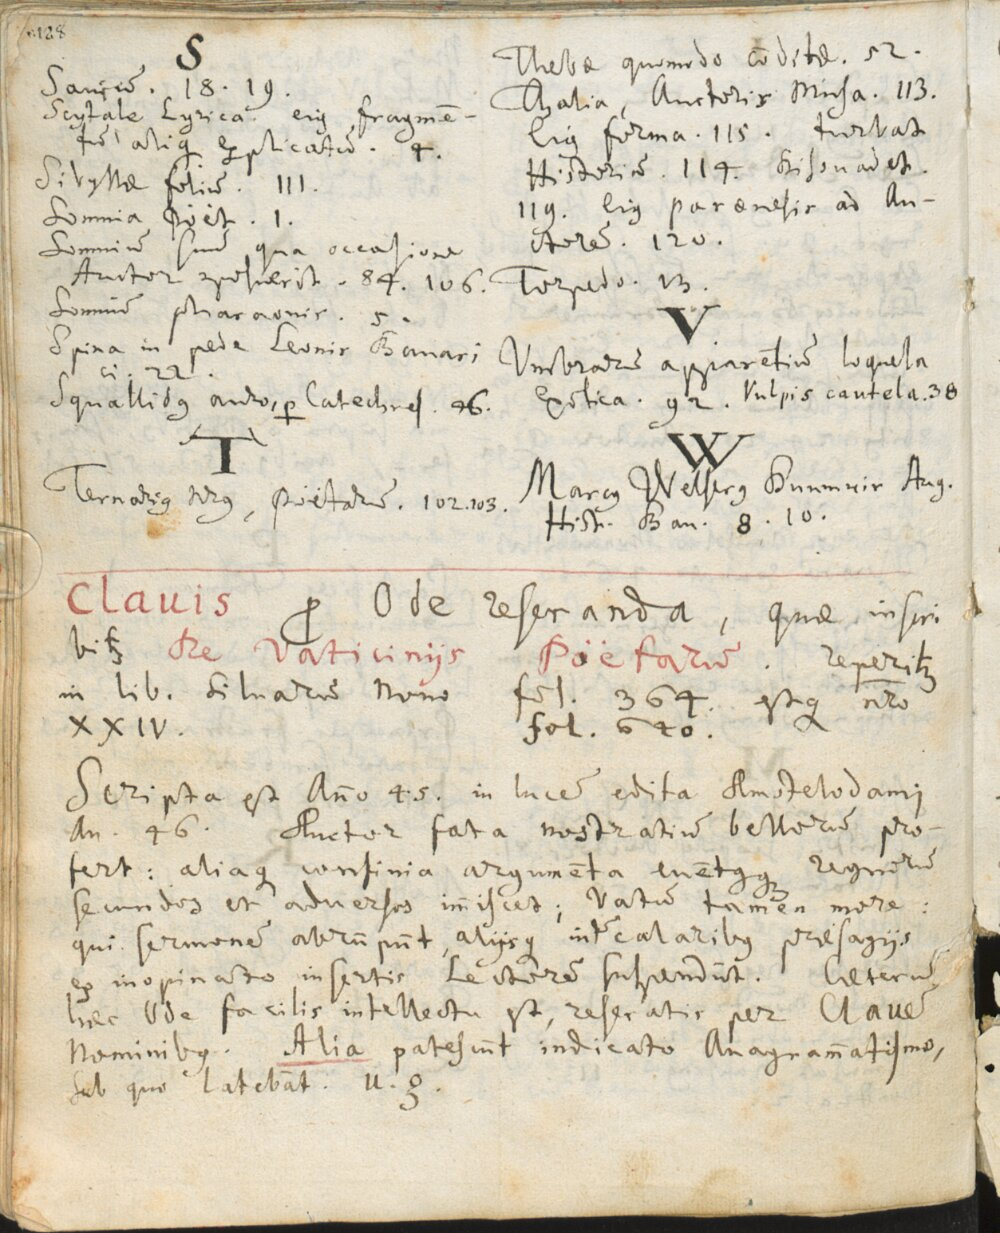 128
S
Saniciē. 18. 19.
Scytale Lyrica. eiꝰ fragmē-
tū aliq explicatū. 4.
Sibyllæ foliū. 111.
Somnia Poët. 1.
Somniū suū qua occasione
Auctor 84. 106.
Somniū pharaonis. 5.
Spina in pede Leonis Bauari
ci. 22.
Squallidꝰ auro, ꝑ Catechres. 46.
T
Ternariꝰ Nrꝰ, Poëtarū. 102.103.
Thebæ quomodo cōditæ. 52.
Thalia, Auctoris Musa. 113.
Eiꝰ forma. 115. turbat
Historiā. 114.
119. Eiꝰ parænesis ad Au-
ctorē. 120.
Torpedo. 13.
V
Umbrarū apparentiū loquela
Exotica. 92. Vulpis cautela. 38
W
Marcꝰ Velserꝰ Duumuir Aug.
Hist. Bau. 8. 10.
Clauis ꝓ Ode reseranda, quæ inscri
bitꝛ De Vaticinijs Poëtarū. reperitꝛ
in lib. Siluarū Nono fol. 364. estq nr̄o
XXIV. fol. 640.
Scripta est Año 45. in lucē edita Amstelodami
An. 46. Auctor fata nostratiū bellorū pro-
fert: aliaq confinia argumēta euētꝰqꝫ regnorū
secundos et aduersos im̄iscet; Vatū tamen more:
qui sermonē abrūpūt, alijsq intercalaribꝰ præsagijs
ex inopinato insertis Lectorē suspendūt. Cæterū
hæc Ode facilis intellectu est, reseratis per Clauē
Nominibꝰ. Alia patesūnt indicato Anagram̄atismo,
sub quo latebāt. u. g.